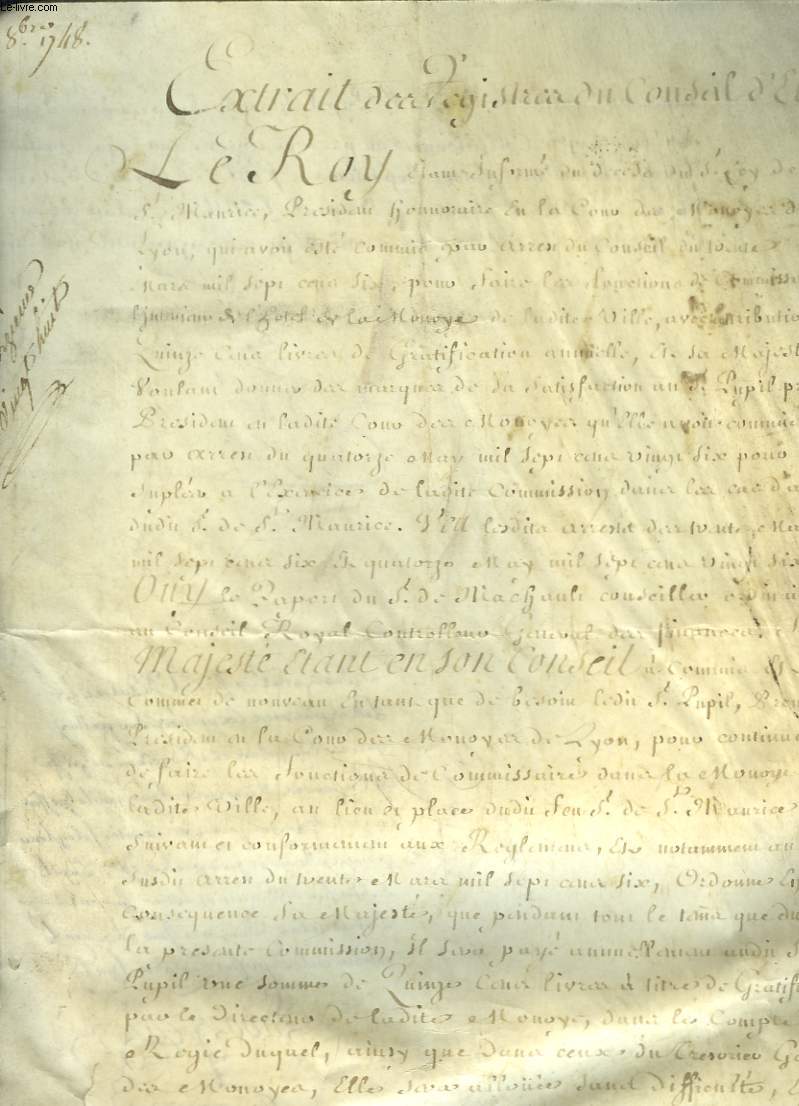 Le-livre.com
8.bre 1748.
Extrait des Registres du Conseil d'E
Le Roy étant Informé du deceds du S.r Ley de
S.t Maurice, President honnoraire En la Cour des Monoyes d
Lyon, qui avoit esté commis par arrest du Conseil du trente
Mars mil sept cens six, pour faire les fonctions de Commissa
de l'hotel de la Monoye de ladite Ville, avec attributio
Quinze cens livres de Gratification annuelle, Et sa Majest
Voulant donner des marques de sa satisfaction au S.r Pupil pr
President en ladite Cour des Monoyes qu'Elle avoit commis
par arrest du quatorze May mil sept cens vingt six pour
Supléer a l'Exercice de ladite Commission dans les cas d'a
dudit S.r de S.t Maurice. Veu lesdits arrests des trente Ma
mil sept cens six Et quatorze May mil sept cens vingt six
Ouy le Raport du S.r de Machault conseiller ordin
au Conseil Royal Controlleur General des finances. S
Majesté étant en son Conseil à Commis Et
Commet de nouveau En tant que de besoin ledit S.r Pupil, Prem
President en la Cour des Monoyes de Lyon, pour continu
de faire les fonctions de Commissaire dans la Monoye
ladite Ville, au lieu et place dudit feu S.r de S.t Maurice
Suivant et conformement aux Reglemens, Et notamment au
Susdit arrest du trente Mars mil sept cens six, Ordonne En
Consequence Sa Majesté, que pendant tout le tems que du
la presente Commission, Il sera payé annuellement audit S
Pupil une somme de Quinze Cens livres à titre de Gratif
par le Directeur de ladite Monoye, dans les Compte
Regie duquel, ainsy que dans ceux du Tresorier Ge
des Monoyes, Elle sera allouée sans difficulté, E